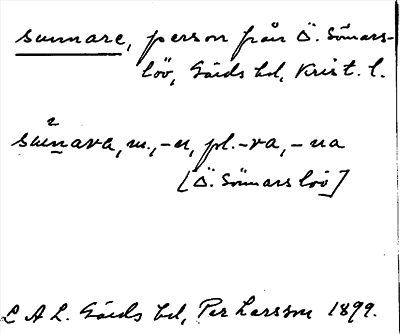 sunnare, person från Ö. Sönnars-
löv, Gärds hd, Krist. l.
sunara, m., -n, pl. -ra, -na
[Ö. Sönnarslöv]
L A L. Gärds hd, Per Larsson 1899.